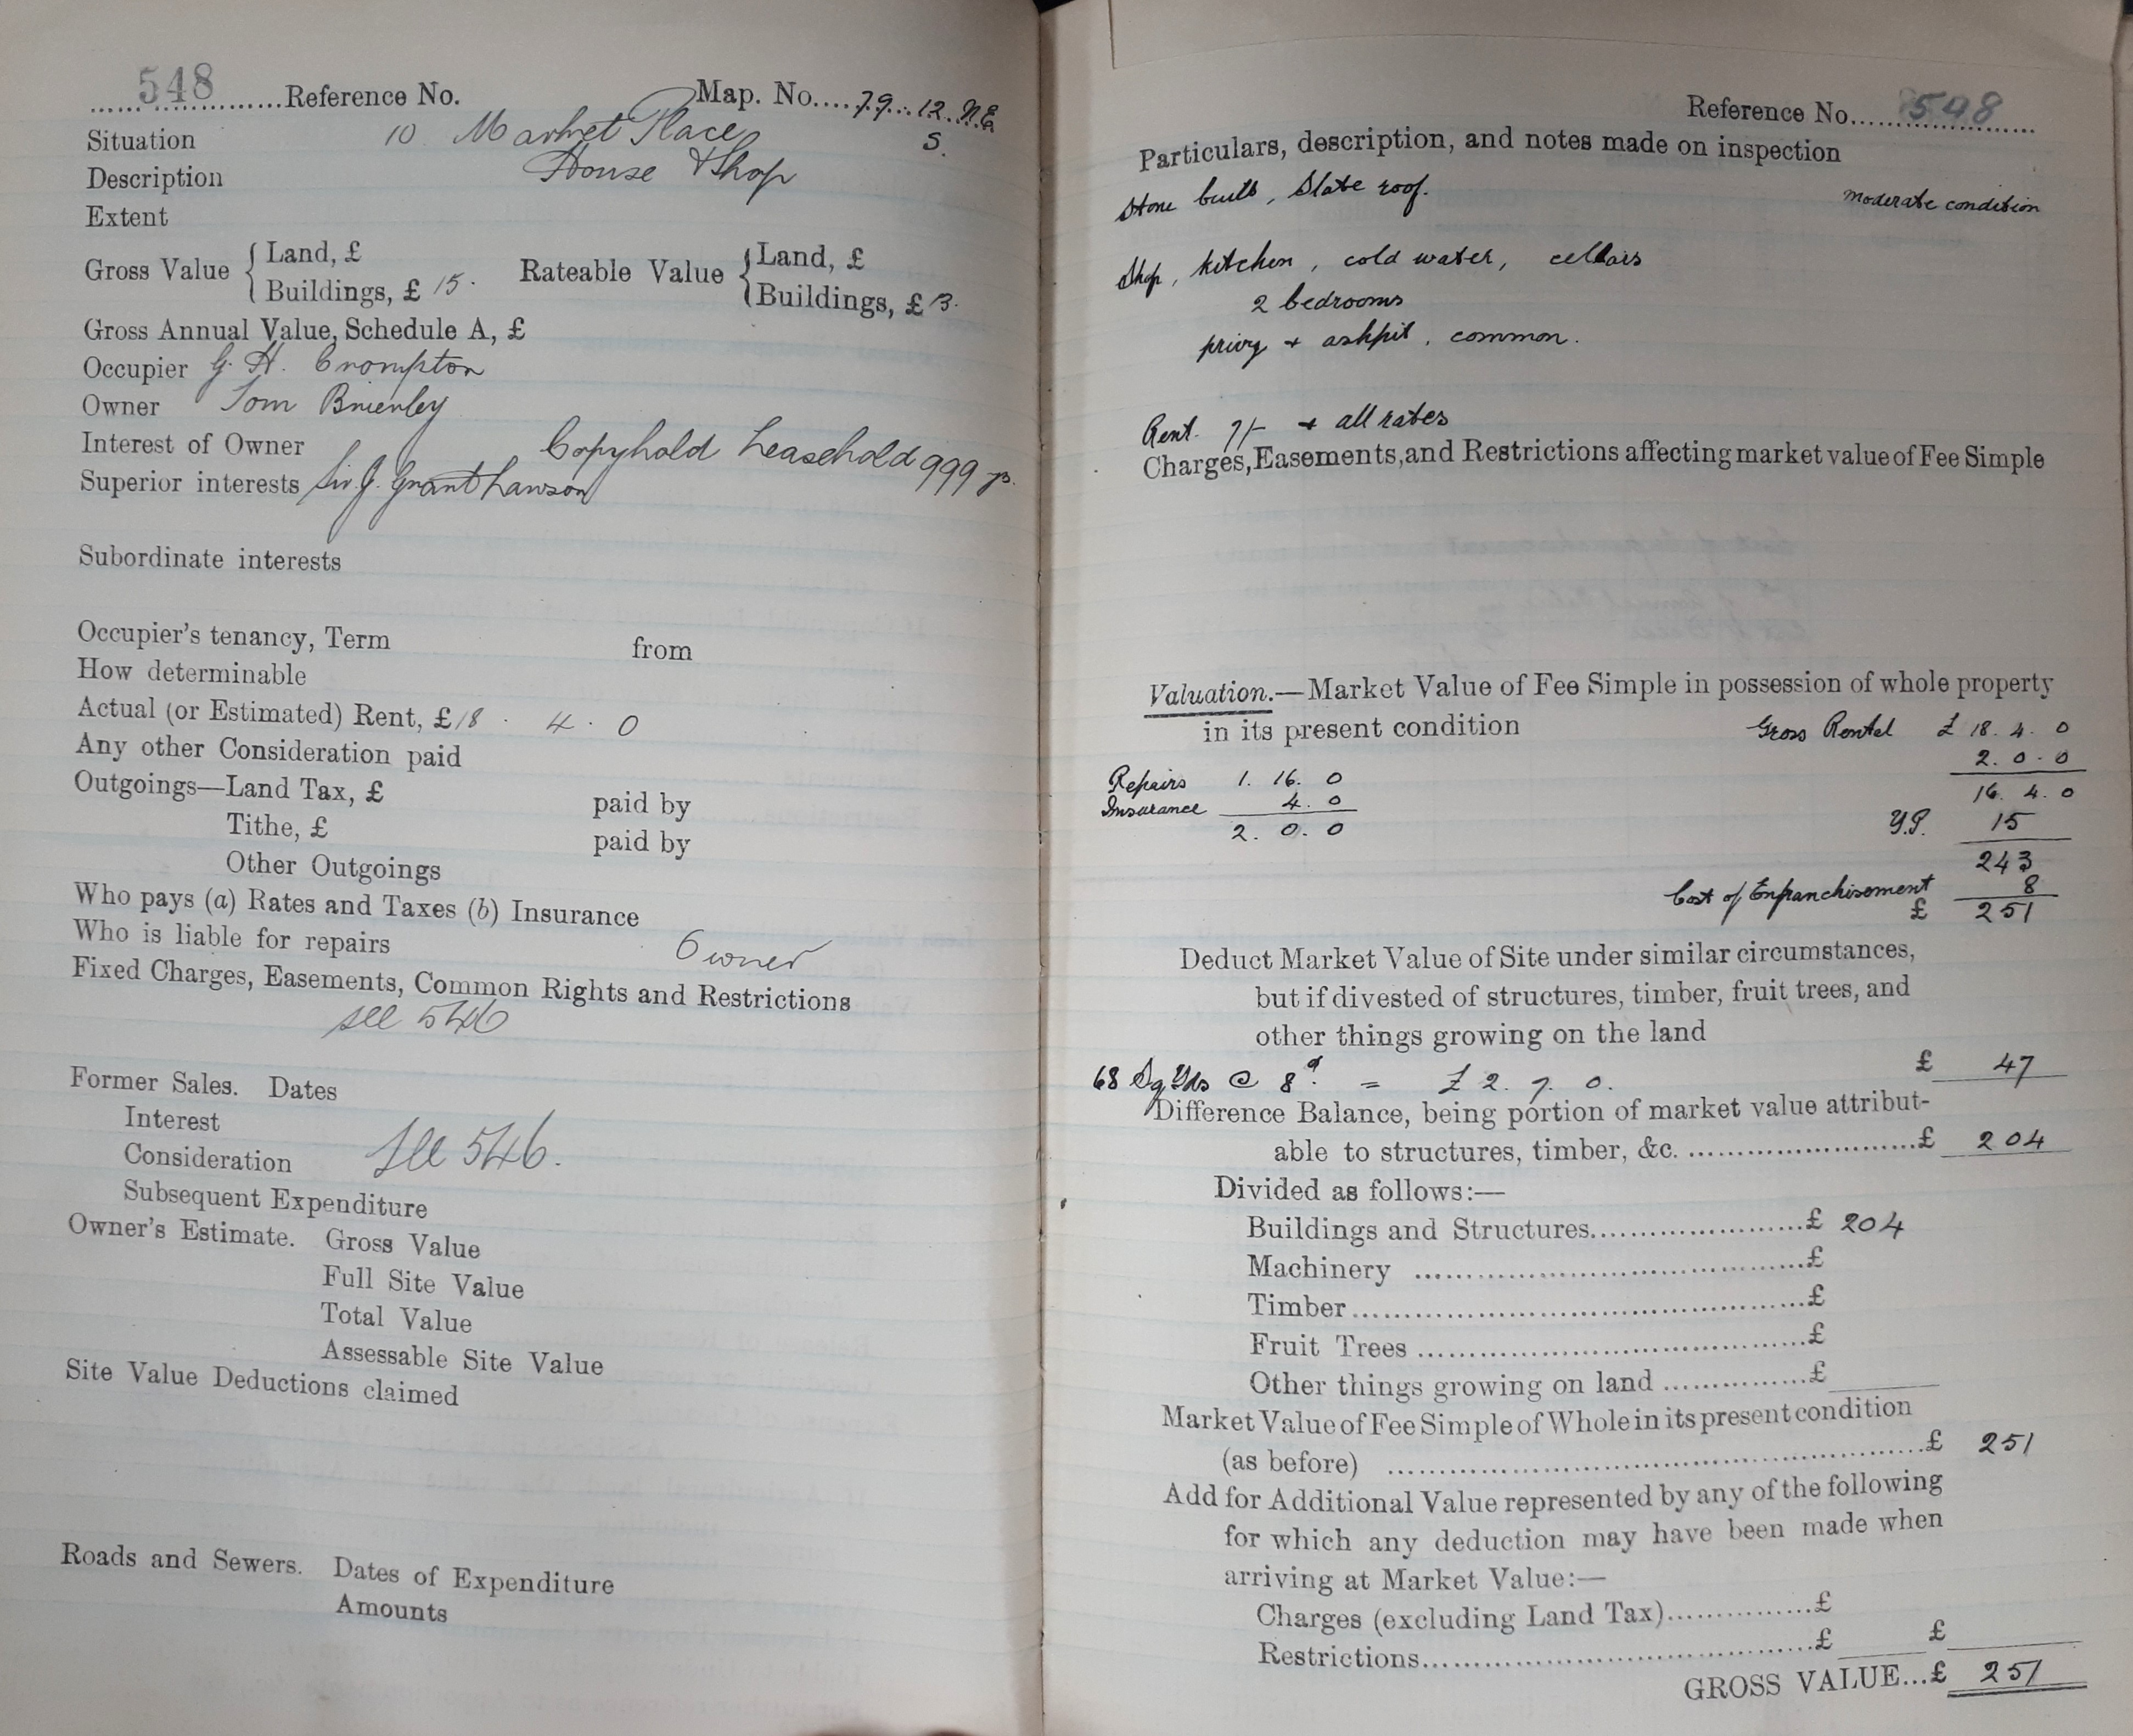 548 Reference No. Map. No. 79. 12. N.E
Situation 10 Market Place S.
Description House & Shop
Extent
Gross Value { Land, £ Rateable Value { Land, £
Buildings, £ 15. Buildings, £ 13.
Gross Annual Value, Schedule A, £
Occupier G. H. Crompton
Owner Tom Brierley
Interest of Owner Copyhold Leasehold 999 yrs.
Superior interests Sir J. Grant Lawson
Subordinate interests
Occupier's tenancy, Term from
How determinable
Actual (or Estimated) Rent, £ 18 . 4 . 0
Any other Consideration paid
Outgoings—Land Tax, £ paid by
Tithe, £ paid by
Other Outgoings
Who pays (a) Rates and Taxes (b) Insurance
Who is liable for repairs Owner
Fixed Charges, Easements, Common Rights and Restrictions
see 546
Former Sales. Dates
Interest
Consideration See 546.
Subsequent Expenditure
Owner's Estimate. Gross Value
Full Site Value
Total Value
Assessable Site Value
Site Value Deductions claimed
Roads and Sewers. Dates of Expenditure
Amounts
Reference No. 548
Particulars, description, and notes made on inspection
Stone built, Slate roof. Moderate condition
Shop, kitchen, cold water, cellars
2 bedrooms
privy + ashpit, common.
Rent. 7/- + all rates
Charges, Easements, and Restrictions affecting market value of Fee Simple
Valuation.—Market Value of Fee Simple in possession of whole property
in its present condition Gross Rental £ 18. 4. 0
2. 0. 0
Repairs 1. 16. 0 16. 4. 0
Insurance 4. 0 Y.P. 15
2. 0. 0 243
Cost of Enfranchisement 8
£ 251
Deduct Market Value of Site under similar circumstances,
but if divested of structures, timber, fruit trees, and
other things growing on the land £ 47
68 Sq Yds @ 8d. = £ 2. 7. 0.
Difference Balance, being portion of market value attribut-
able to structures, timber, &c. £ 204
Divided as follows:—
Buildings and Structures £ 204
Machinery £
Timber £
Fruit Trees £
Other things growing on land £
Market Value of Fee Simple of Whole in its present condition
(as before) £ 251
Add for Additional Value represented by any of the following
for which any deduction may have been made when
arriving at Market Value:—
Charges (excluding Land Tax) £
Restrictions £ £
GROSS VALUE...£ 251